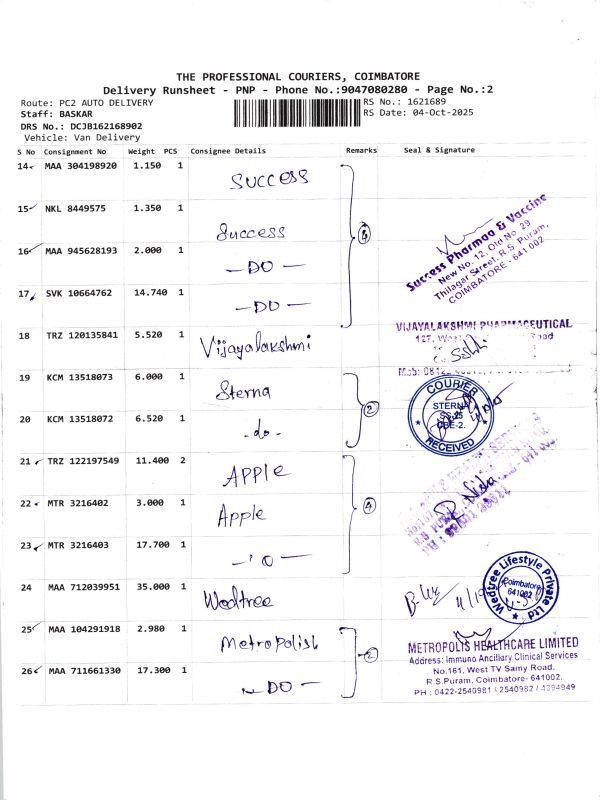 THE PROFESSIONAL COURIERS, COIMBATORE
Delivery Runsheet - PNP - Phone No.:9047080280 - Page No.:2
Route: PC2 AUTO DELIVERY
RS No.: 1621689
Staff: BASKAR
RS Date: 04-Oct-2025
DRS No.: DCJB162168902
Vehicle: Van Delivery
S No Consignment No Weight PCS Consignee Details Remarks Seal & Signature
14 MAA 304198920 1.150 1 SUCCESS
15 NKL 8449575 1.350 1 Success
16 MAA 945628193 2.000 1 — DO —
17 SVK 10664762 14.740 1 — DO —
Success Pharmaa & Vaccine
New No. 12, Old No. 29
Thilagar Street, R.S. Puram,
COIMBATORE - 641 002
18 TRZ 120135841 5.520 1 Vijayalakshmi
VIJAYALAKSHMI PHARMACEUTICAL
127, West Road
19 KCM 13518073 6.000 1 Sterna 2
20 KCM 13518072 6.520 1 - do -
COURIER
STERNA
CBE-2.
RECEIVED
21 TRZ 122197549 11.400 2 APPLE
22 MTR 3216402 3.000 1 Apple 4
23 MTR 3216403 17.700 1
24 MAA 712039951 35.000 1 Wedtree
Wedtree Lifestyle Private Ltd
Coimbatore
641002
25 MAA 104291918 2.980 1 Metropolish 2
26 MAA 711661330 17.300 1 — DO —
METROPOLIS HEALTHCARE LIMITED
Address: Immuno Ancillary Clinical Services
No.161, West TV Samy Road,
R.S.Puram, Coimbatore- 641002.
PH : 0422-2540981 / 2540982 / 4394949